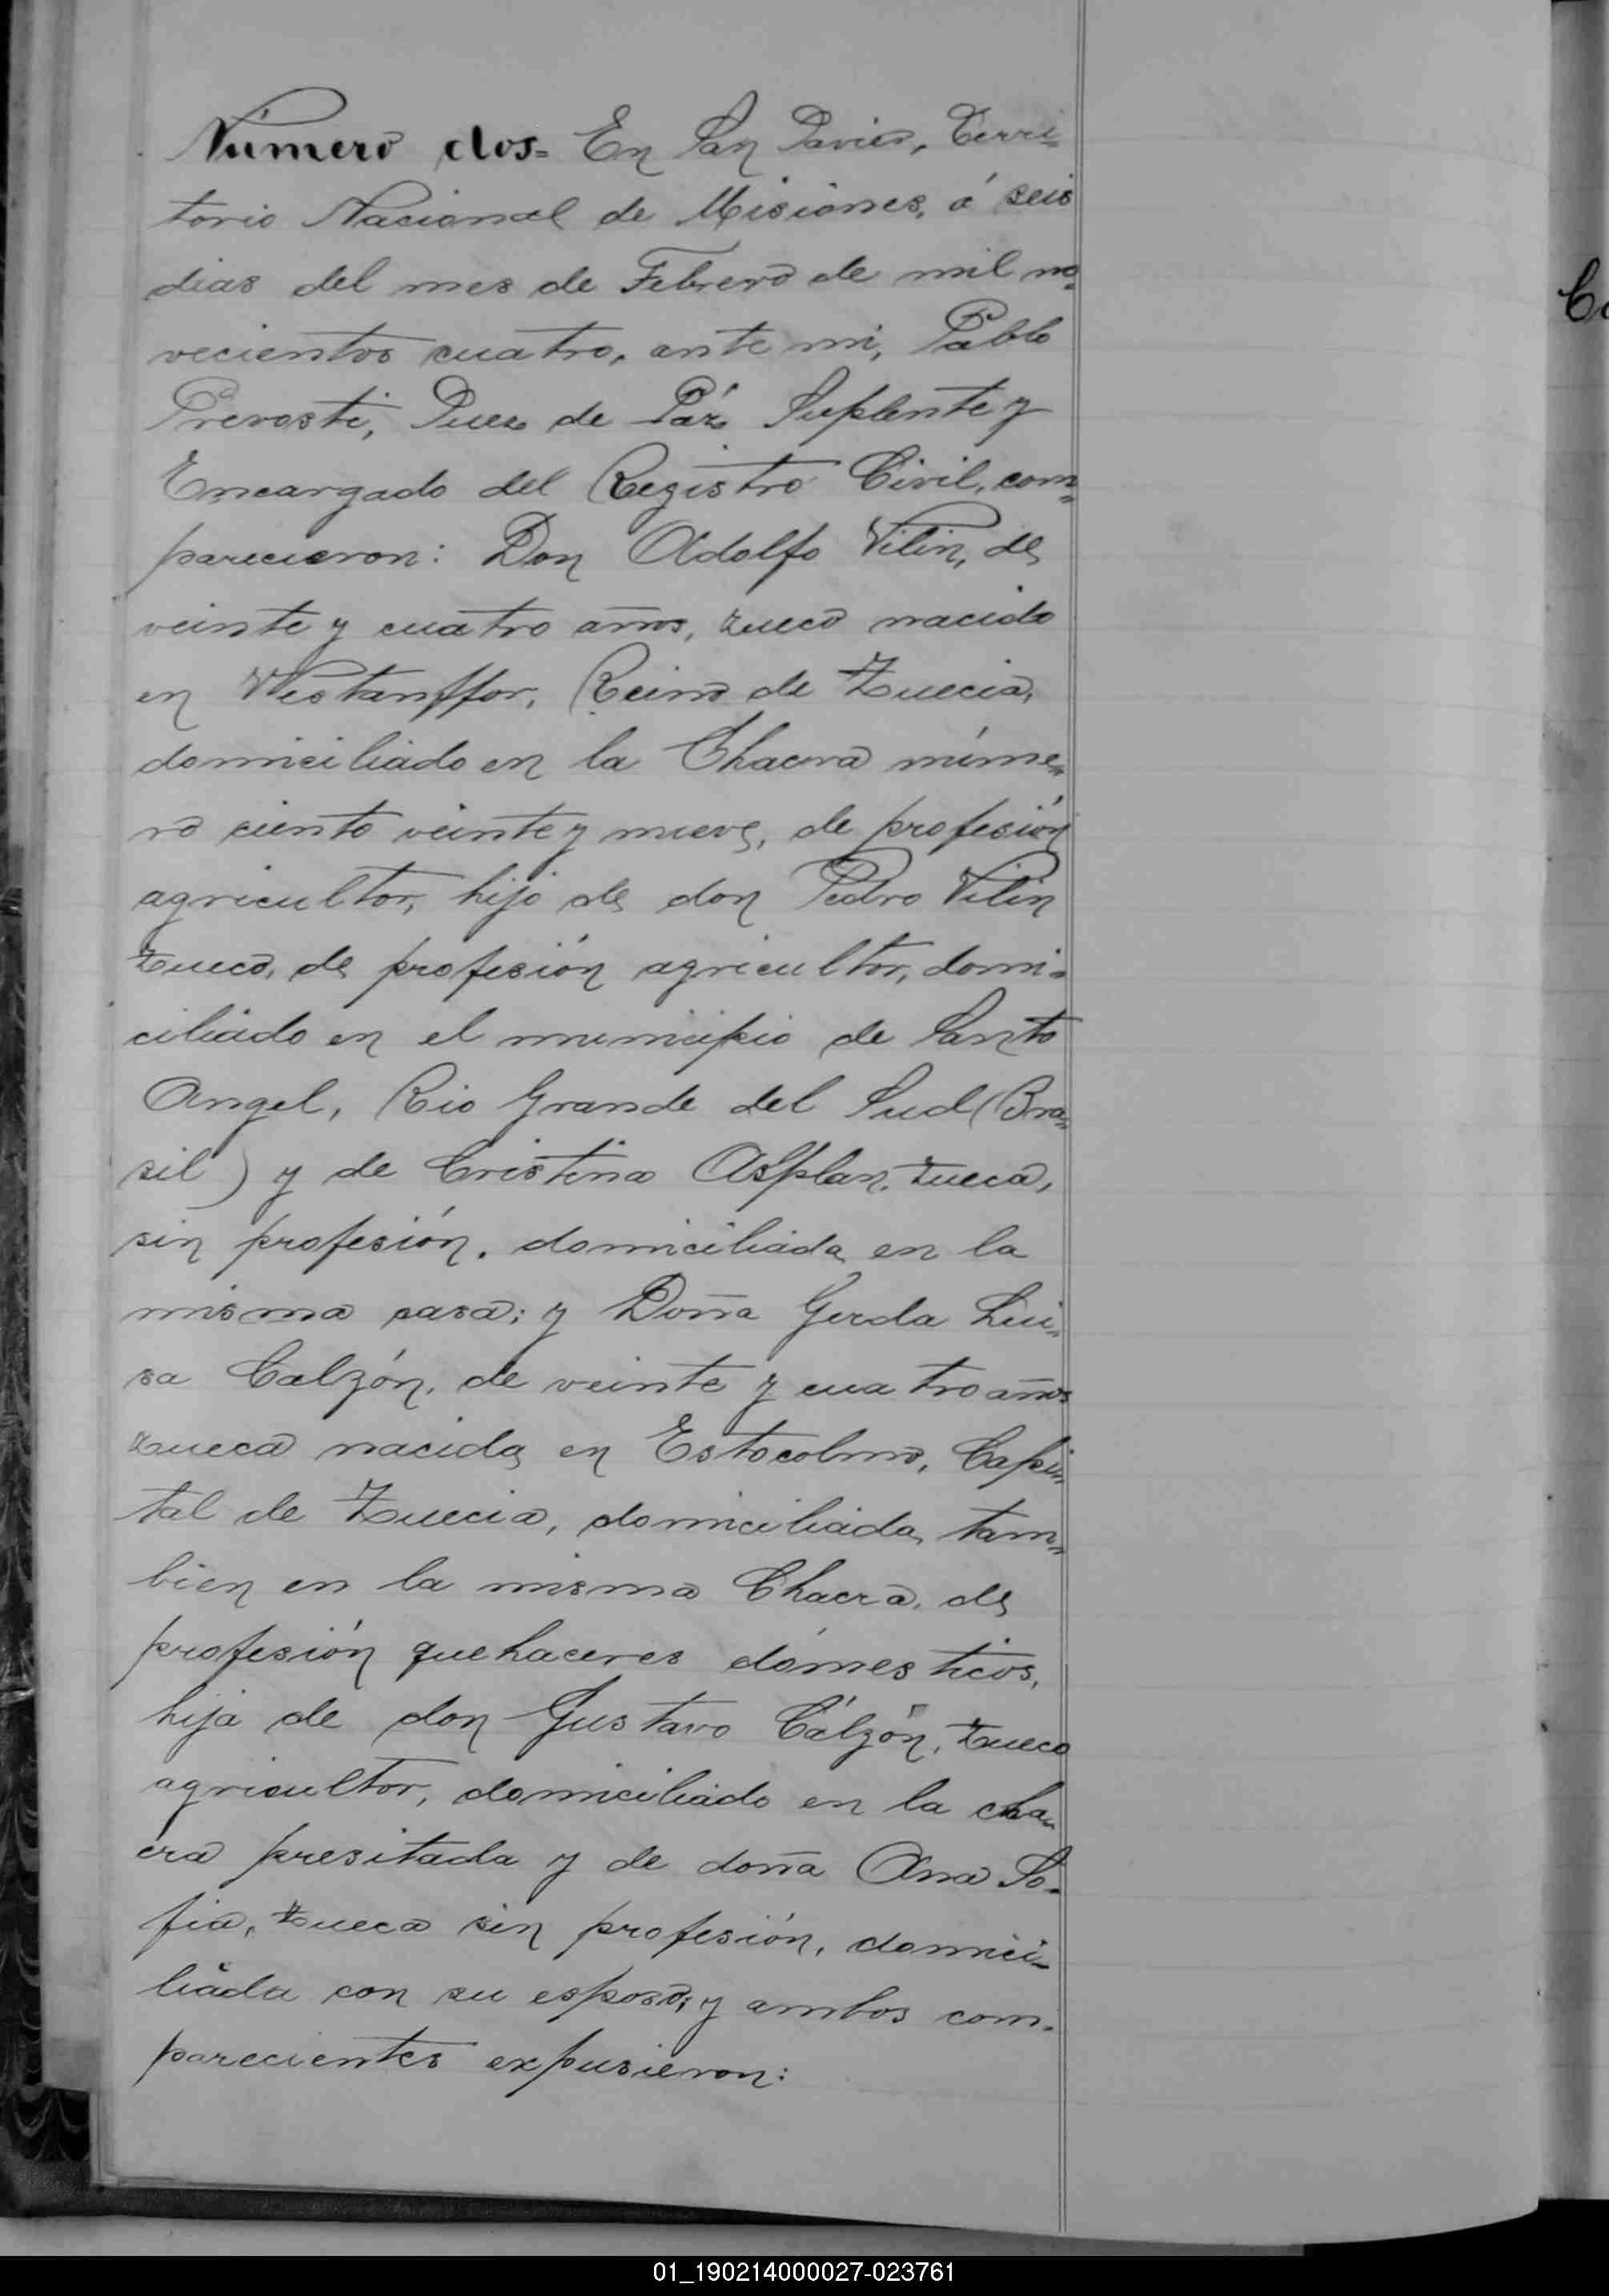 Número dos= En San Javier, Terri=
torio Nacional de Misiones, á seis
dias del mes de Febrero de mil no=
vecientos cuatro, ante mi, Pablo
Prevosti, Juez de Páz Suplente y
Encargado del Registro Civil, com=
parecieron: Don Adolfo Vilin, de
veinte y cuatro años, zueco nacido
en Westanffor, Reino de Zuecia,
domiciliado en la Chacra núme=
ro ciento veinte y nueve, de profesión
agricultor, hijo de don Pedro Vilin
zueco, de profesión agricultor, domi=
ciliado en el municipio de Santo
Angel, Rio Grande del Sud (Bra=
sil) y de Cristina Asplan, zueca,
sin profesión, domiciliada en la
misma casa; y Doña Gerda Lui=
sa Calzón, de veinte y cuatro años
zueca nacida en Estocolmo, Capi=
tal de Zuecia, domiciliada tam=
bien en la misma Chacra, de
profesión quehaceres dómesticos,
hija de don Gustavo Cálzón, zueco
agricultor, domiciliado en la cha=
cra presitada y de doña Ana So=
fia, zueca sin profesión, domici=
liada con su esposo; y ambos com=
parecientes expusieron:
Co
01_190214000027-023761